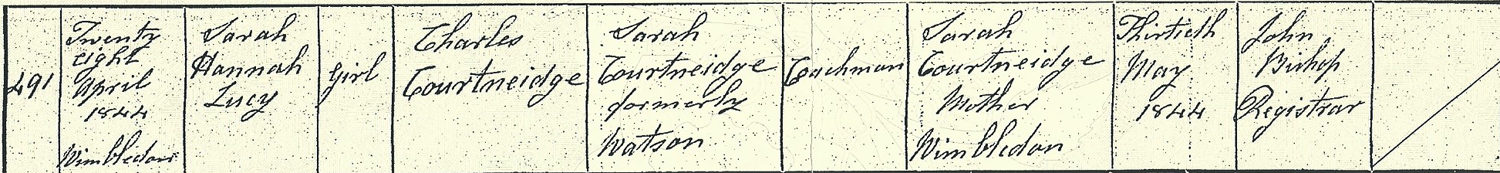 491
Twenty
eight
April
1844
Wimbledon
Sarah
Hannah
Lucy
Girl
Charles
Courtneidge
Sarah
Courtneidge
formerly
Watson
Coachman
Sarah
Courtneidge
Mother
Wimbledon
Thirtieth
May
1844
John
Bishop
Registrar